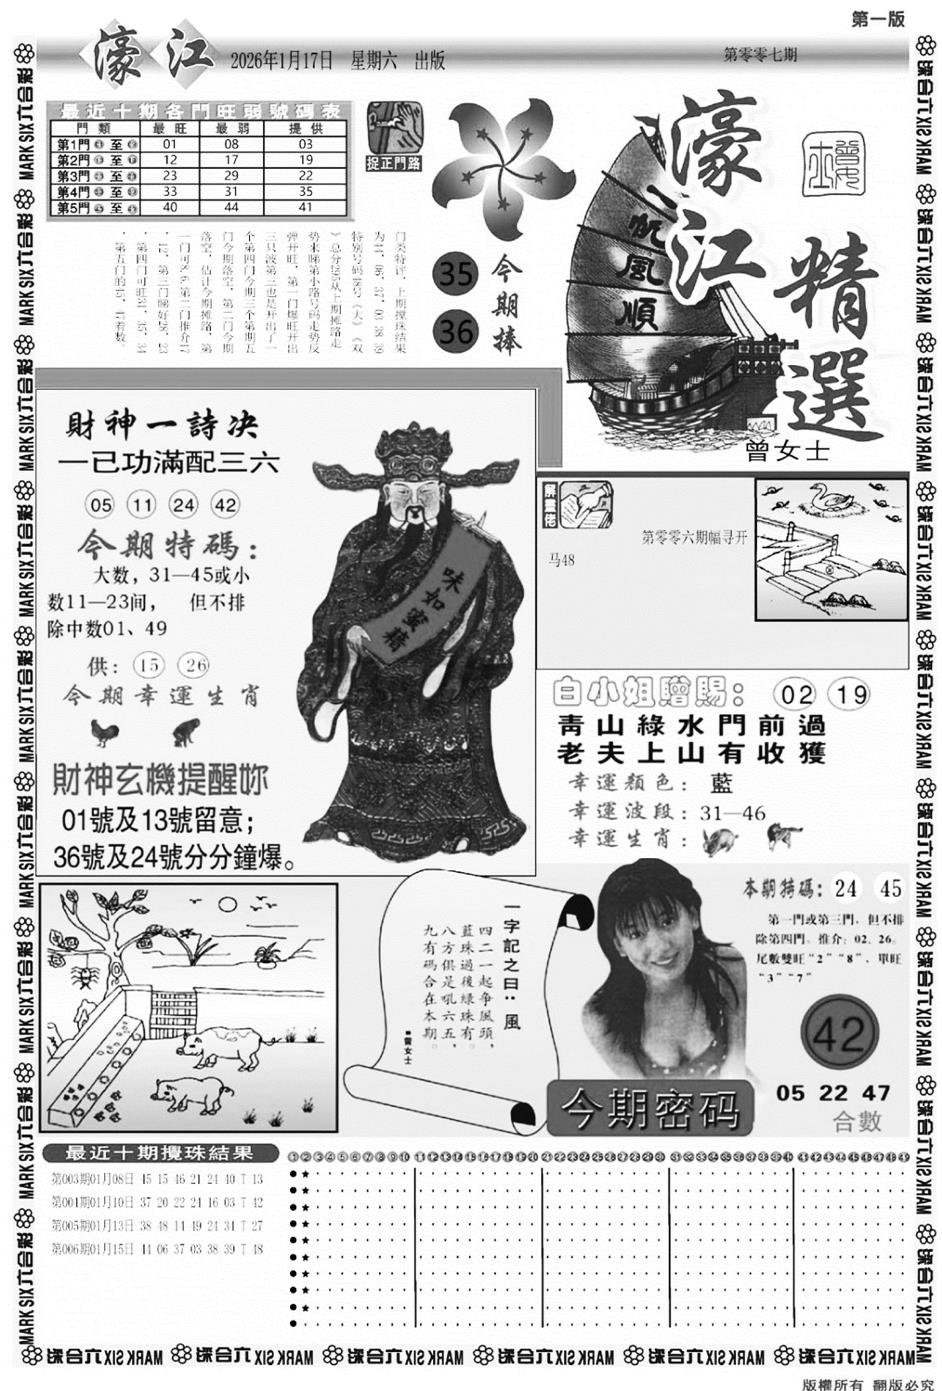 第一版
濠江
2026年1月17日　星期六　出版
第零零七期
最近十期各門旺弱號碼表
門類 最旺 最弱 提供
第1門 至 01 08 03
第2門 至 12 17 19
第3門 至 23 29 22
第4門 至 33 31 35
第5門 至 40 44 41
捉正門路
35
36
今期捧
濠江
精選
一帆風順
曾女士
財神一詩决
一已功滿配三六
05 11 24 42
今期特碼：
大数，31—45或小
数11—23间，　但不排
除中数01、49
供：15 26
今期幸運生肖
財神玄機提醒妳
01號及13號留意；
36號及24號分分鐘爆。
味如蜜糖
解畫佬
第零零六期幅寻开
马48
白小姐贈賜：02 19
靑山綠水門前過
老夫上山有收獲
幸運顏色：藍
幸運波段：31—46
幸運生肖：
一字記之曰：風
四二一一起争風頭，
藍珠過後綠珠有。
八方俱是吼六五，
九有碼合在本期。
■曾女士
本期特碼：24 45
第一門或第三門，但不排
除第四門。推介：02、26。
尾數雙旺“2”“8”、單旺
“3”“7”
42
05 22 47
合數
今期密码
最近十期攪珠結果
第003期01月08日 45 15 46 21 24 40 T 13
第004期01月10日 37 20 22 24 16 03 T 42
第005期01月13日 38 48 14 49 24 31 T 27
第006期01月15日 44 06 37 03 38 39 T 48
MARK SIX六合彩
版權所有 翻版必究